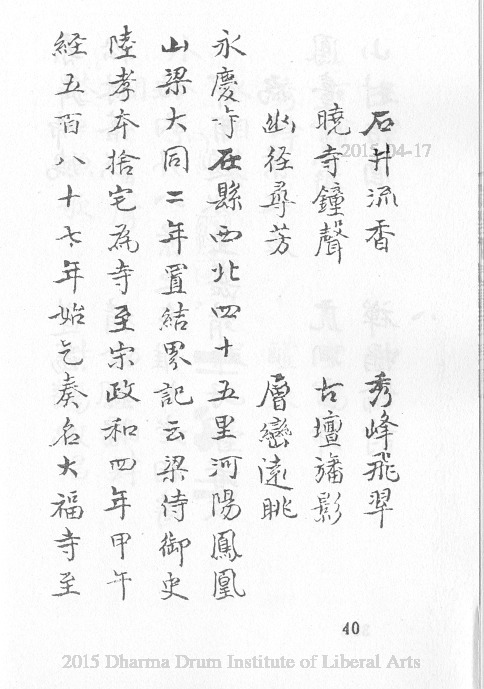 石井流香 秀峰飛翠
曉寺鐘聲 古壇旛影
幽径尋芳 層巒遠眺
永慶寺在縣西北四十五里河陽鳳凰
山梁大同二年置結界記云梁侍御史
陸孝本捨宅為寺至宋政和四年甲午
経五百八十七年始乞奏名大福寺至
40
2015-04-17
2015 Dharma Drum Institute of Liberal Arts